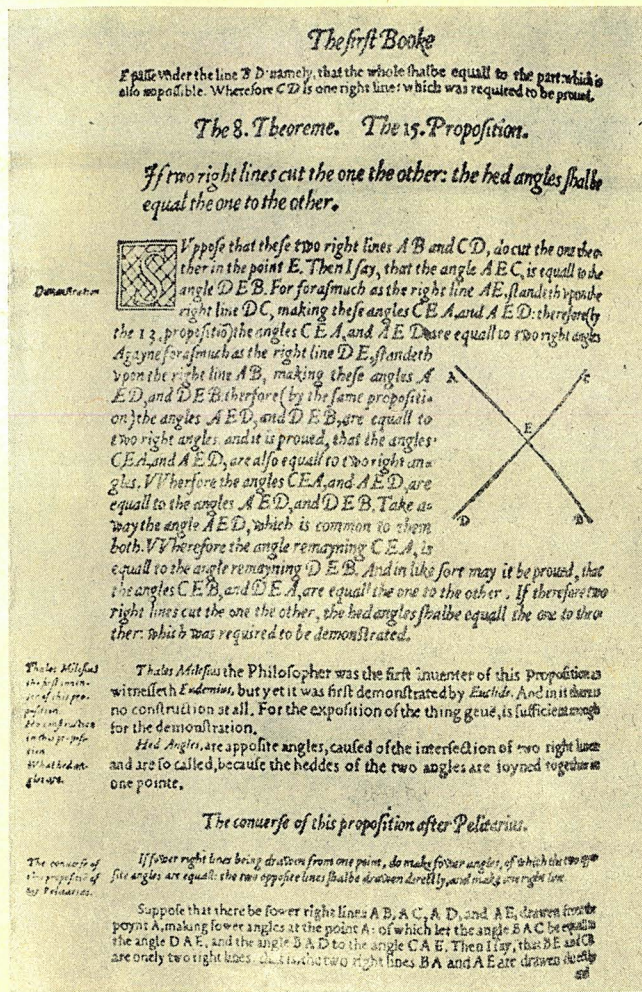 The first Booke
E passe vnder the line B D: namely, that the whole shalbe equall to the part: which is
also impossible. Wherefore C D is one right line: which was required to be proued.
The 8. Theoreme. The 15. Proposition.
If two right lines cut the one the other: the hed angles shalbe
equal the one to the other.
Demonstration
SVppose that these two right lines A B and C D, do cut the one the o-
ther in the point E. Then I say, that the angle A E C, is equall to the
angle D E B. For forasmuch as the right line A E, standeth vpon the
right line D C, making these angles C E A, and A E D: therefore (by
the 13. proposition) the angles C E A, and A E D are equall to two right angles
Agayne forasmuch as the right line D E, standeth
vpon the right line A B, making these angles A
E D, and D E B: therfore (by the same propositi-
on) the angles A E D, and D E B, are equall to
two right angles. and it is proued, that the angles
C E A, and A E D, are also equall to two right an-
gles. VVherfore the angles C E A, and A E D, are
equall to the angles A E D, and D E B. Take a-
way the angle A E D, which is common to them
both. VVherefore the angle remayning C E A, is
equall to the angle remayning D E B. And in like sort may it be proued, that
the angles C E B, and D E A, are equall the one to the other. If therefore two
right lines cut the one the other, the hed angles shalbe equall the one to the o-
ther: which was required to be demonstrated.
A
C
E
D
B
Thales Milesius
the first inuen-
ter of this pro-
position.
No construction
in this propo-
tion
What hed an-
gles are.
Thales Milesius the Philosopher was the first inuenter of this Proposition as
witnesseth Eudemius, but yet it was first demonstrated by Euclide. And in it there is
no construction at all. For the exposition of the thing geuē, is sufficient enough
for the demonstration.
Hed Angles, are apposite angles, caused of the intersection of two right lines
and are so called, because the heddes of the two angles are ioyned together in
one pointe.
The conuerse of this proposition after Pelitarius.
The conuerse of
this proposition
by Pelitarius.
If fower right lines being drawen from one point, do make fower angles, of which the two oppo-
site angles are equall: the two opposite lines shalbe drawen directly, and make one right line.
Suppose that there be fower right lines A B, A C, A D, and A E, drawen from the
poynt A, making fower angles at the point A: of which let the angle B A C be equall to
the angle D A E, and the angle B A D to the angle C A E. Then I say, that B E and C D
are onely two right lines. that is, the two right lines B A and A E are drawen directly